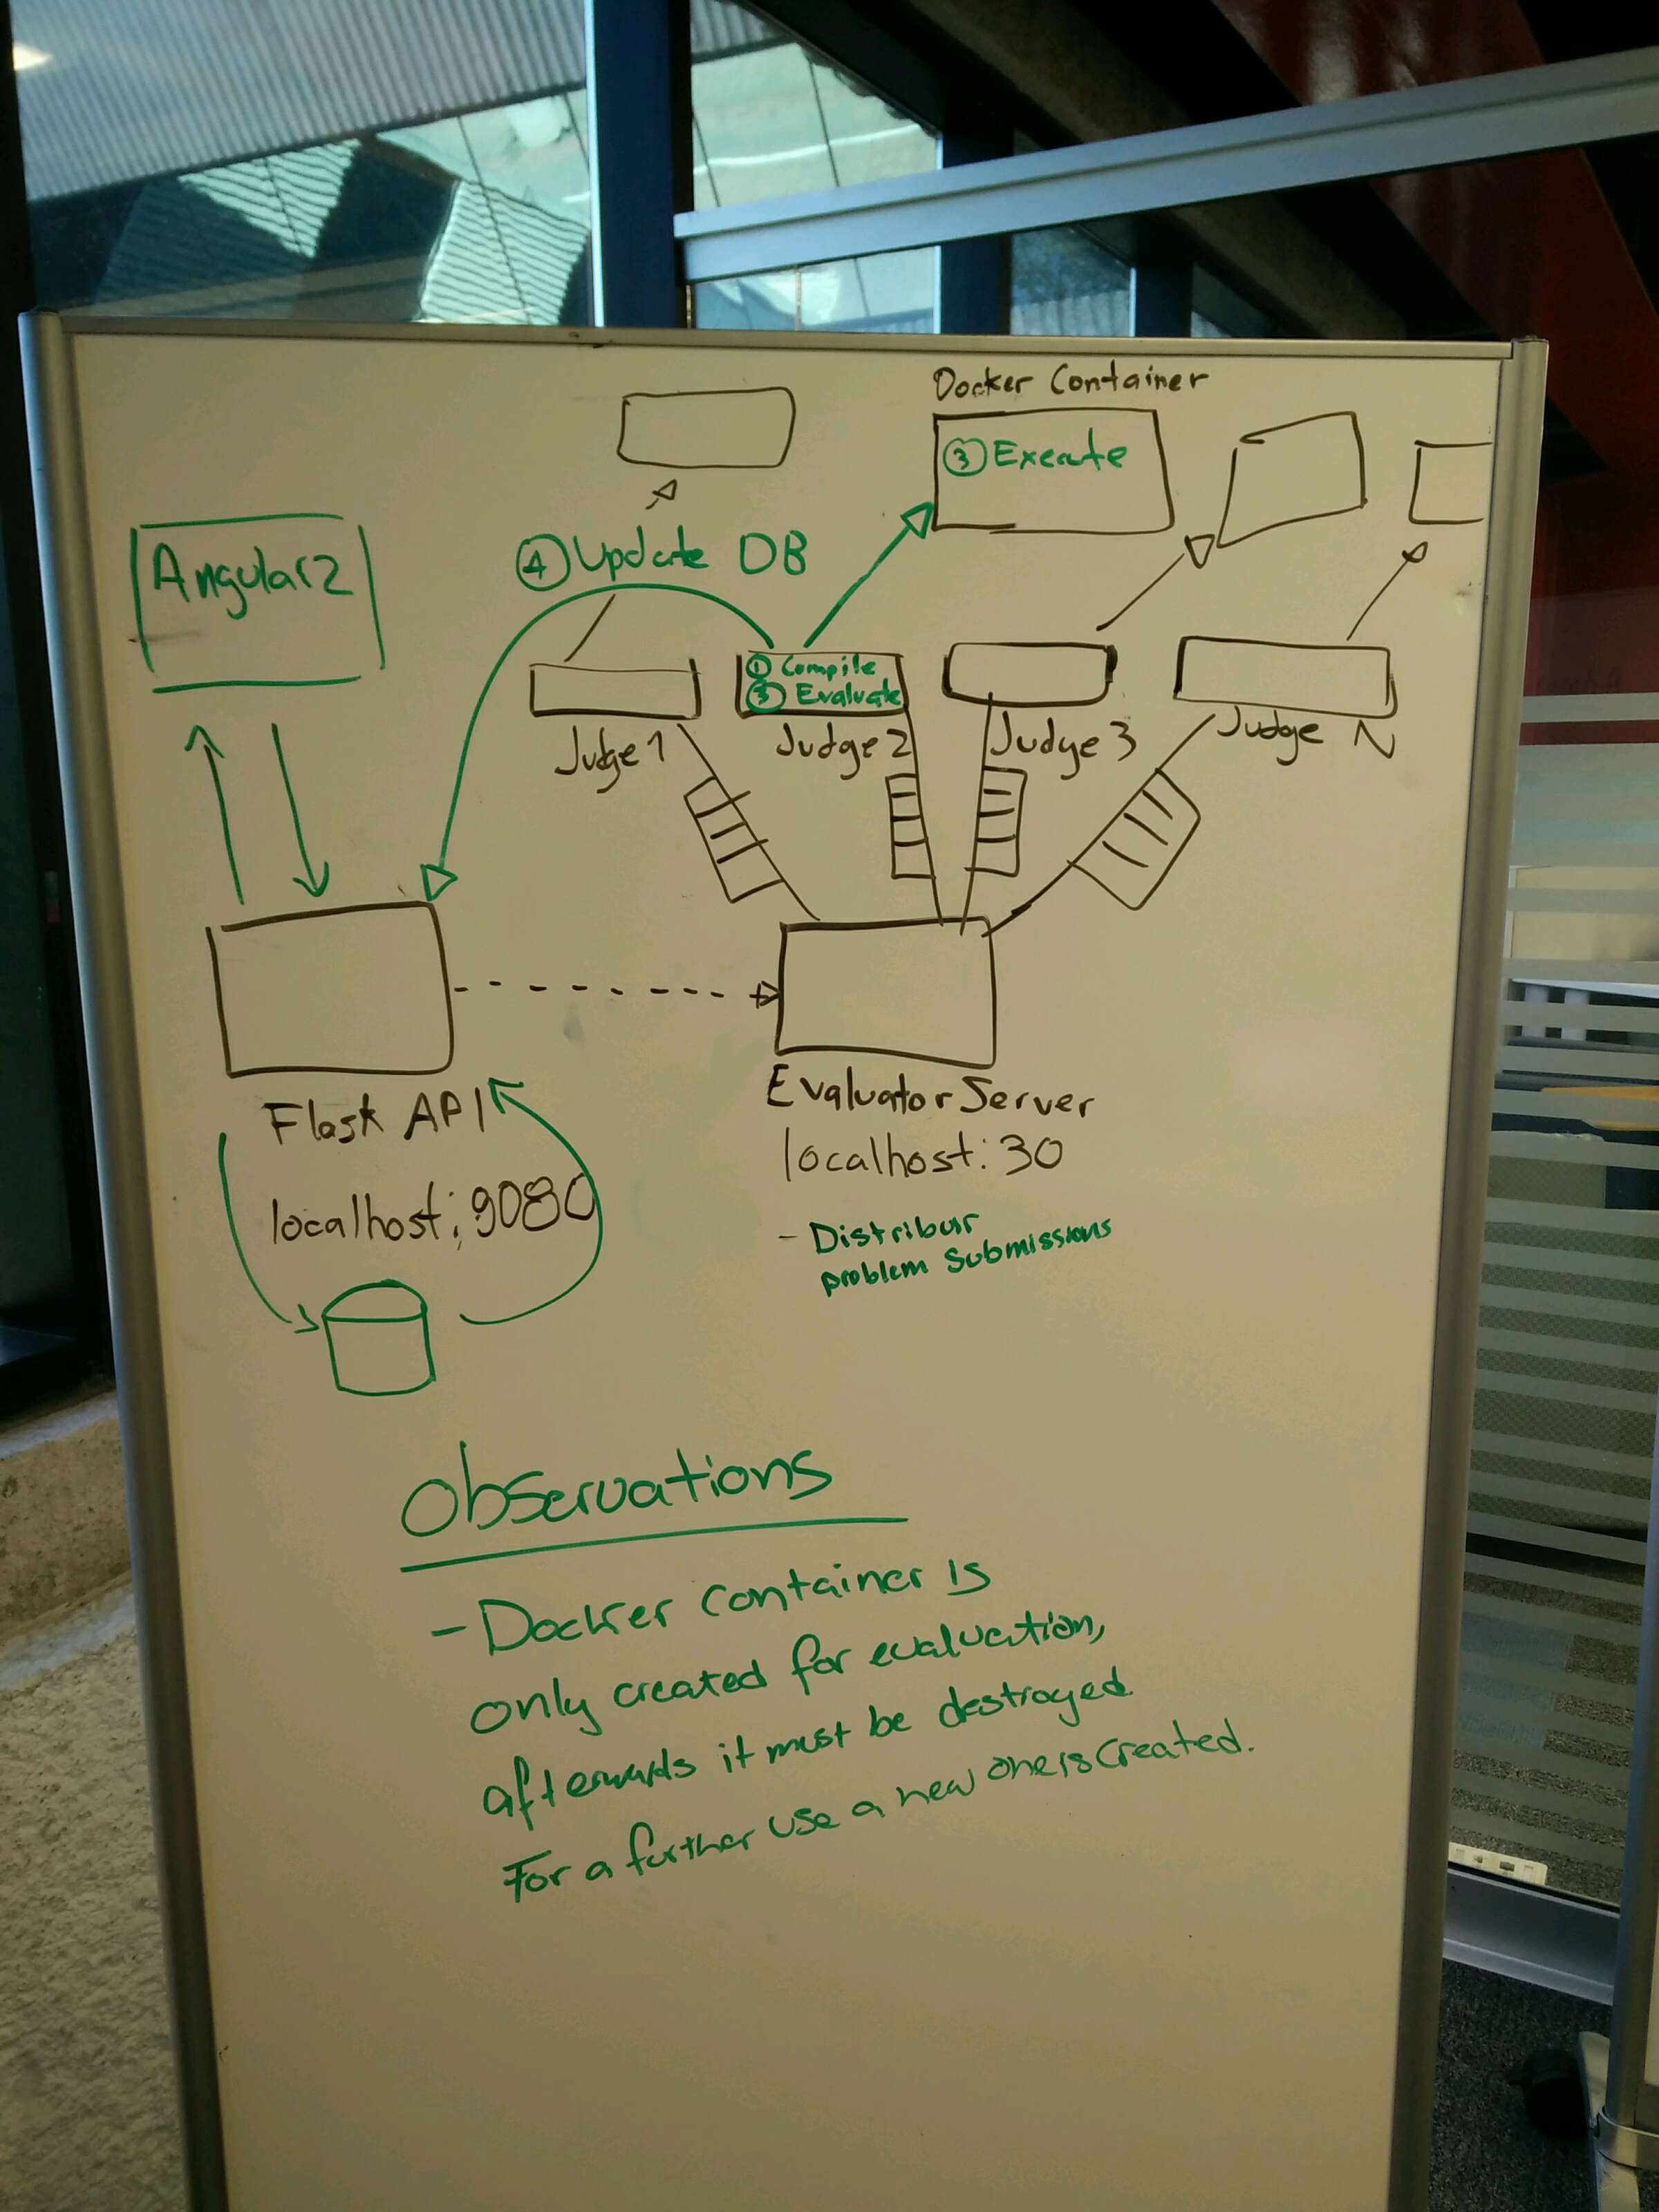 Docker Container
③ Execute
④ Update DB
Angular2
① Compile
③ Evaluate
Judge 1
Judge 2
Judge 3
Judge N
Flask API
localhost: 9080
Evaluator Server
localhost: 30
- Distribuir
problem submissions
Observations
- Docker container is
only created for evaluation,
afterwards it must be destroyed.
For a further use a new one is created.